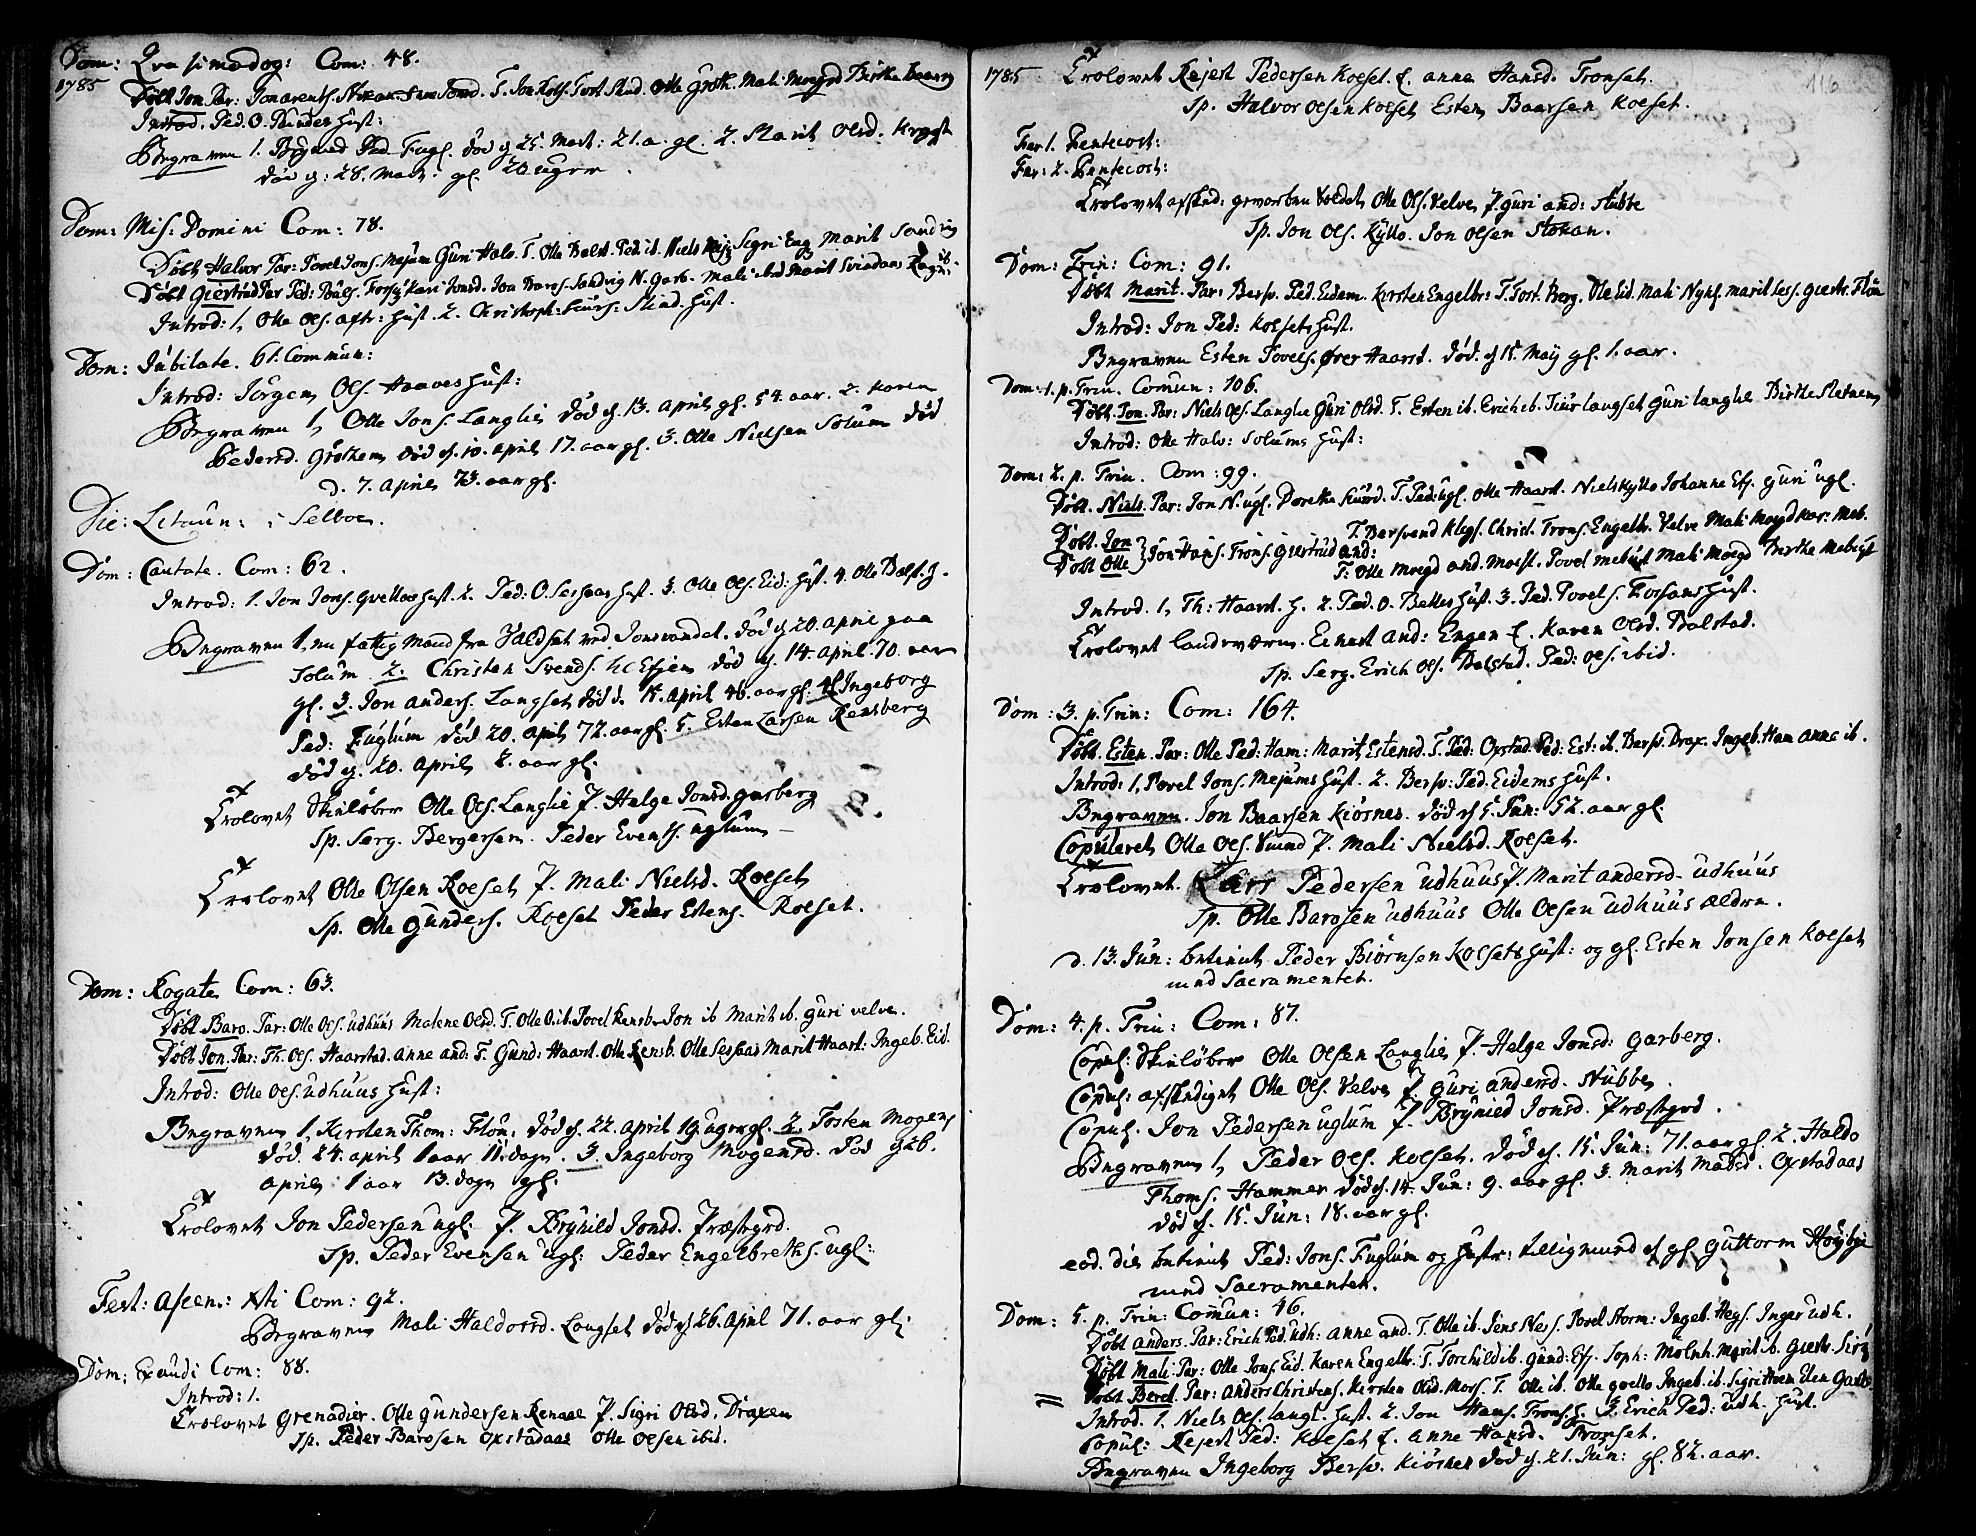 Dom: Qvasimodog: Com: 48.
1785
Døbt Jon Par: Jon arents. T. Jon Rolfs. Tost Stud. Olle Groth. Mali Moegd Birthe
Introd. Ped. O. hust:
Begraven 1. Ped. Fugl. død d. 25. Mart: 21. a. gl. 2. Marit Olsd.
død d: 28. Mart. gl. 20 uger.
Dom: Mis: Domini Com: 78.
Døbt Halvor Par: Povel Jons. Mejum Guri Halv. T. Olle Balst. Ped. ib. Niels Sigri Eng Marit Sandvig
Døbt Giertrud Par Ped: Pouls. Kari Jonsd. Jon Baros. Sandvig N. Garb. Mali ibid Marit
Introd: 1, Olle Ols. aftr: Hust. 2. Christoph: Hust.
Dom: Jubilate. 61. Commun:
Introd: Jörgen Ols. Haaves Hust:
Begraven 1, Olle Jons. Langlie død d. 13. April gl. 54. aar. 2. Karen
Pedersd. Grøthem død d. 10. April 17. aar gl. 3. Olle Nielsen Solum død
d. 7. April 73. aar gl.
Die: Litaun: i Selboe.
Dom: Cantate. Com: 62.
Introd: 1. Jon Jons. Qvelloes Hust. 2. Ped: O. Sesaas Hust. 3. Olle Ols. Eid: Hust. 4. Olle Balst. H.
Begraven 1, en fattig Mand fra ved Jonsvandet. død d 20. April paa
Solum 2. Christen Svends. død d. 14. April 70. aar
gl. 3. Jon Anders. Langset død d. 15. April 46. aar gl. 4. Ingeborg
Ped: Fuglum død 20. April 72. aar gl. 5. Esten Larsen Rensberg
død d. 20. April 2. aar gl.
Trolovet Skielöber Olle Ols. Langlie P. Helge Jonsd. Garberg
Sp. Serg. Bergersen. Peder Events. Uglum
Trolovet Olle Olsen Koeset P. Mali Nielsd. Roeset
Sp. Olle Gunders. Roeset Peder Estens. Roeset.
Dom: Rogate Com: 63.
Døbt Baro. Par: Olle Ols. Udhuus Malene Olsd. T. Olle O. ib. Povel Rensb. Jon ib Marit ib. Guri Velve.
Døbt Jon. Par: Th. Ols. Haarstad. Anne And: T. Gund: Haarst. Olle Rensb. Olle Sesaas Marit Haarst: Ingeb. Eid.
Introd: Olle Ols. Udhuus Hust:
Begraven 1, Kirsten Thom: Flön, død d. 22. April 19. uger gl. 2. Tosten Mogens
død. 24. April 1 aar 11. dage. 3. Ingeborg Mogensd. død d. 26.
April 1 aar 13. dage gl.
Trolovet Jon Pedersen Ugl: P. Brynild Jonsd. Præstgrd.
Sp. Peder Evensen Ugl: Peder Engelbreths. Ugl:
Fest: Ascens: Xti Com: 92.
Begraven Mali Haldorsd. Langset død d. 26. April 71. aar gl:
Dom: Exaudi Com: 88.
Introd: 1.
Trolovet Grenadier. Olle Gundersen Renaae P. Sigri Olsd. Draxen
Sp. Peder Barosen Oxstadaae Olle Olsen ibid.
1785
116
Trolovet Rejert Pedersen Koeset. P. Anne Hansd. Tronset.
Sp. Halvor Olsen Koeset Esten Baarsen Koeset.
Fer 1. Pentecost:
Fer: 2. Pentecost:
Trolovet afsked: geworben Soldat Olle Ols. Velve P. Guri And: Stubbe
Sp. Jon Ols. Kyllo. Jon Olsen Stokan.
Dom: Trin: Com: 91.
Døbt Marit. Par: Bersv. Ped. Eidem. Kirsten Engelbr: T. Tost. Berg. Ole Eid. Mali Marit Giertr. Flön
Introd: Jon Ped: Koesets Hust.
Begraven Esten Povels. Øver Haarst. død. d. 15. Maij gl. 1. aar.
Dom: 1. p. Trin. Comun: 106.
Døbt. Jon. Par: Niels Ols. Langlie Guri Olsd. T. Esten ib. Erich ib. Siur Langset Guri Langlie Birthe Sletnem
Introd: Olle Halv: Solums Hust:
Dom: 2. p. Trin. Com: 99.
Døbt. Niels. Par: Jon N. Ugl. Dorethe T. Ped: Ugl. Olle Haarst. Niels Kyllo Johanne Ef. Guri Ugl.
T. Bersvend Christ. Trons. Engelbr. Velve Mali Moegd Kar: Meb.
Døbt. Jon
Døbt Olle } Jon Hans. Trons. Giertrud And:
T: Olle Moegd And. Moest. Povel Mebust Mali Moegd Birthe Mebust
Introd. 1, Th: Haarst. H. 2. Ped. O. Belles Hust. 3. Ped. Povels. Fossans Hust.
Trolovet Landeværn. Einert And: Engen P. Karen Olsd. Balstad.
Sp. Serg. Erich Ols. Balstad. Ped: Ols. ibid.
Dom: 3. p. Trin: Com: 164.
Døbt. Esten. Par: Olle Ped: Ham: Marit Estensd. T. Ped: Oxstad. Ped: Est: ib. Bersv. Drax. Ingeb. Ham Anne ib.
Introd: 1, Povel Jons. Mejums Hust. 2. Bersv: Ped. Eidems Hust.
Begraven. Jon Baarsen Kiösnes. død d 5. Jun: 52. aar gl:
Copuleret Olle Ols. P. Mali Nielsd. Roeset.
Trolovet. Lars Pedersen Udhuus P. Marit Andersd. Udhuus
Sp. Olle Barosen Udhuus Olle Olsen Udhuus ældre.
d. 13. Jun: betient Peder Biörnsen Koesets Hust: og gl. Esten Jonsen Koeset
med Sacramentet.
Dom: 4. p. Trin: Com: 87.
Copul: Skielöber Olle Olsen Langlie P. Helge Jonsd: Garberg.
Copul: afskediget Olle Ols. Velve P. Guri Andersd. Stubbe.
Copul. Jon Pedersen Uglum P. Brynild Jonsd. Præstgrd.
Begraven 1, Peder Ols. Koeset. død d. 15. Jun: 71. aar gl. 2. Haldo
Thoms. Hammer død d. 14. Jun: 9. aar gl. 3. Marit Madsd. Oxstadaas
død d. 15. Jun: 18. aar gl.
eod. die betient Ped: Jons. Fuglum og Hustr: tilligemed gl. Guttorm Höyby
med Sacramentet.
Dom: 5. p. Trin: Comun: 46.
Døbt Anders. Par: Erich Ped. Udh: Anne And. T. Olle ib. Jens Nes. Povel Storm: Ingeb. Inger Udh.
Døbt Mali. Par: Olle Jons. Eid. Karen Engelbr. T. Torchild ib. Gund: Soph: Marit ib. Giertr.
Døbt Beret. Par: Anders Christens. Kirsten Olsd. Moss. T. Olle ib. Olle Qvello Ingeb. ib. Sigri Elen Garb.
Introd. 1, Niels Ols. Langl. Hust. 2. Jon Hans. Trons. H. 3. Erich Ped: Udh. Hust.
Copul: Rejert Ped: Koeset P. Anne Hansd. Tronset.
Begraven Ingeborg Bersv. Kiösnes død d. 21. Jun: gl. 82. aar.